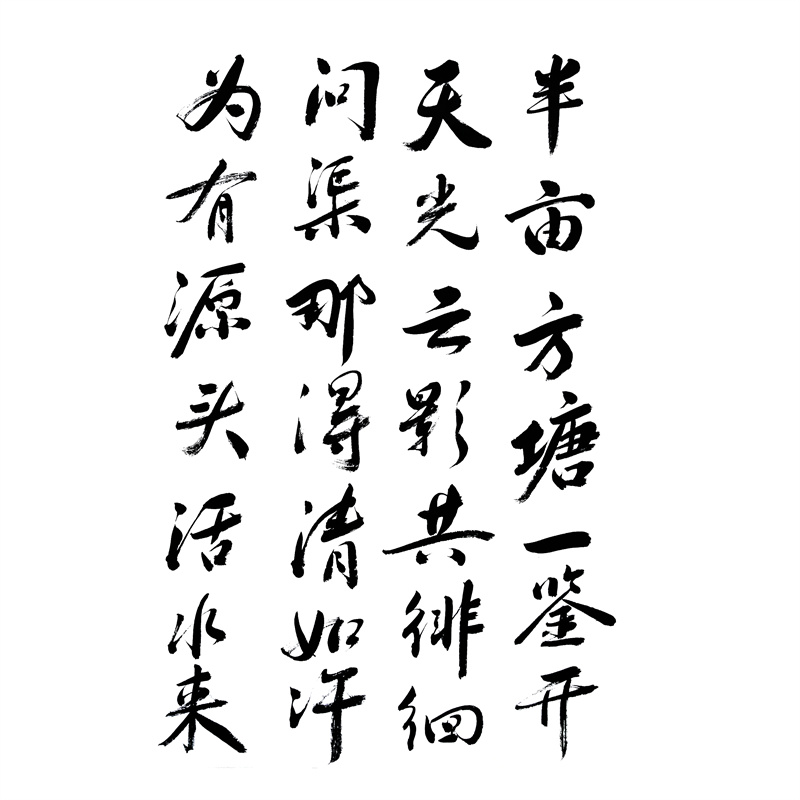 半亩方塘一鉴开
天光云影共徘徊
问渠那得清如许
为有源头活水来